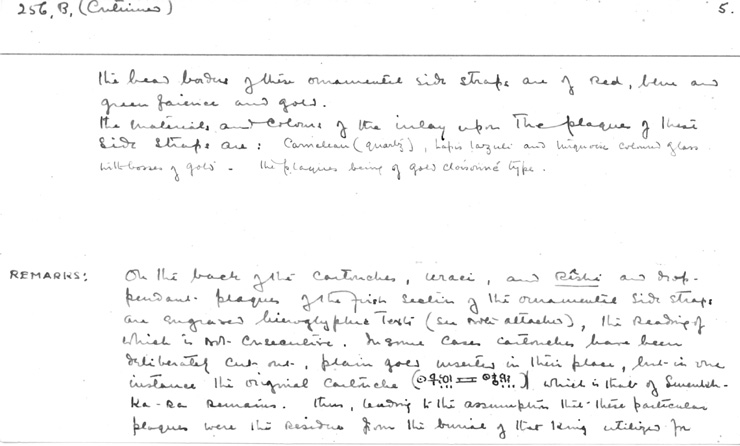 256, B, (Continued) 5.
The bead borders of these ornamental side straps are of red, blue and
green faience and gold.
The materials and colours of the inlay upon the plaques of these
side straps are: Carnelian (quartz), lapis lazuli and turquoise coloured glass
with bosses of gold. The plaques being of gold cloisonné type.
REMARKS: On the back of the cartouches, uraei, and Rîshi and drop-
pendant plaques of the first section of the ornamental side straps
are engraved hieroglyphic texts (see note attached), the reading of
which is not consecutive. In some cases cartouches have been
deliberately cut out, plain gold inserted in their place, but in one
instance the original cartouche which is that of Smenkh-
ka-Ra remains. Thus, leading to the assumption that these particular
plaques were the residue from the burial of that King utilized for